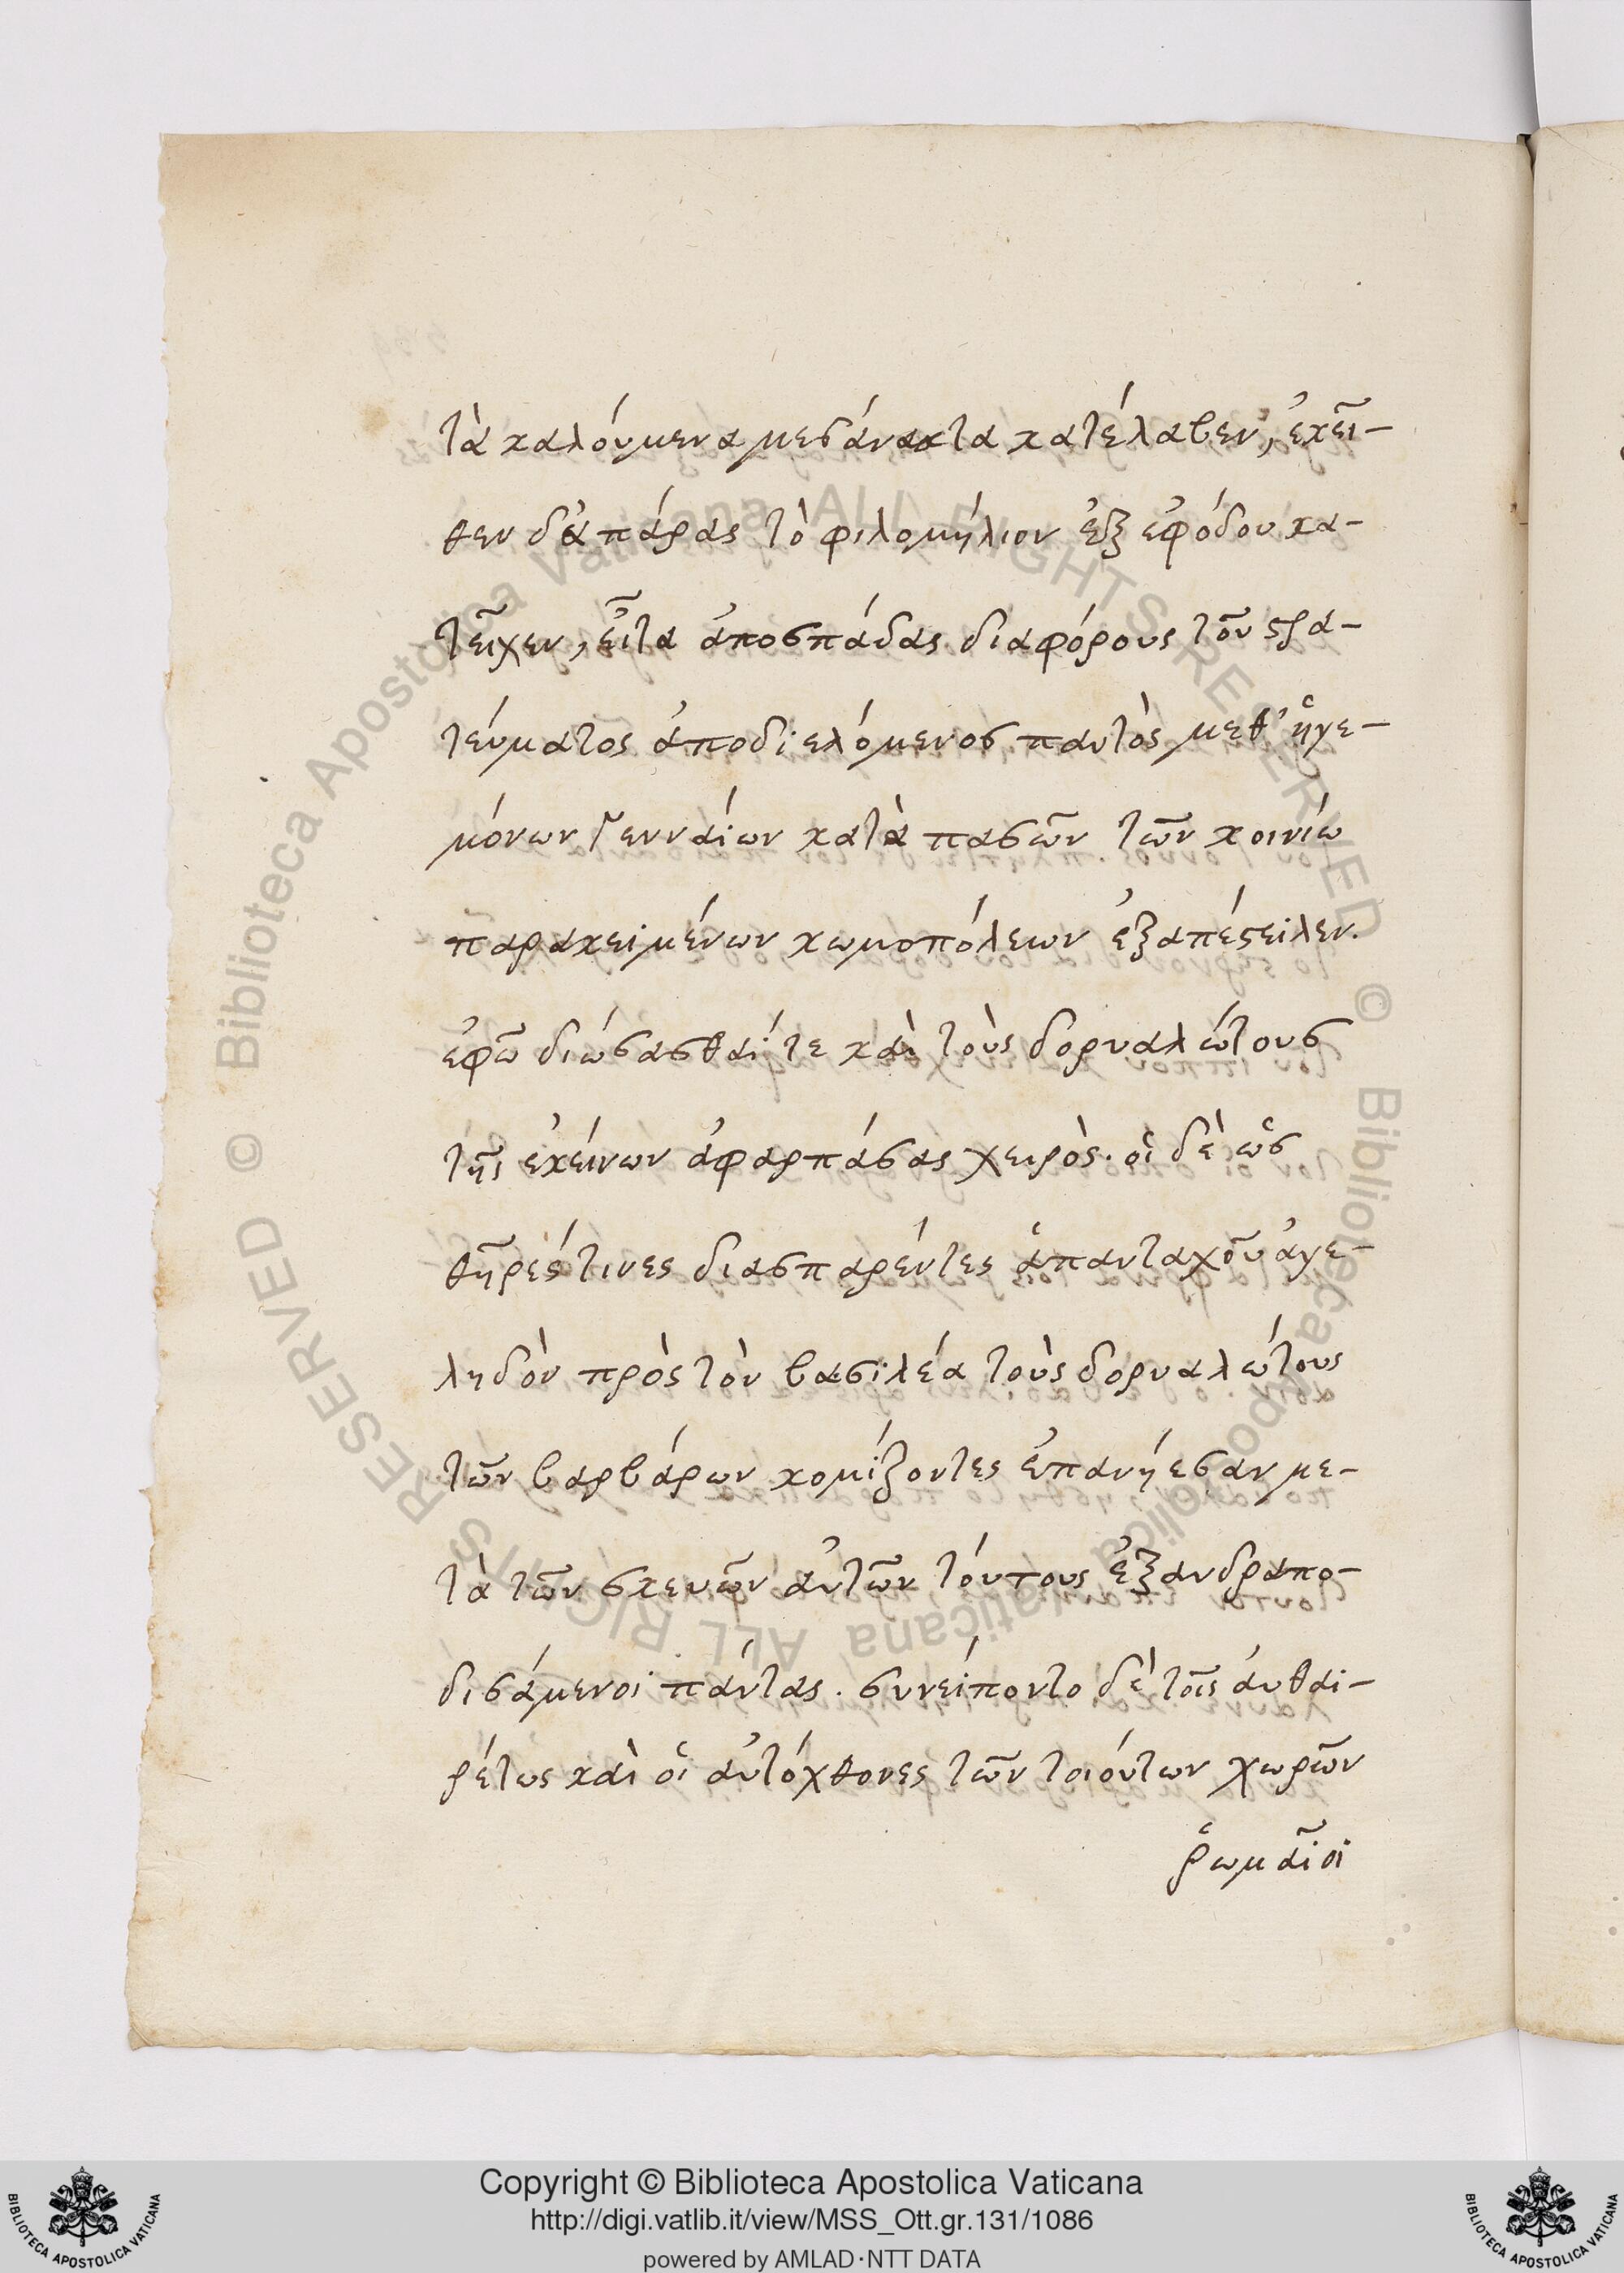 τὰ καλούμενα μεσάνακτα κατέλαβεν, ἐκεῖ-
θεν δ' ἀπάρας τὸ φιλομήλιον ἐξ εφόδου κα-
τεῖχεν, εἶτα ἀποσπάδας διαφόρους τοῦ στρα-
τεύματος ἀποδιελόμενος παντὸς μεθ' ἡγε-
μόνων γενναίων κατὰ πασῶν τῶν κοινίω
παρακειμένων κωμοπόλεων ἐξαπέστειλεν.
ἐφῶ διώσασθαί τε καὶ τοὺς δορυαλώτους
τῆς ἐκείνων ἀφαρπάσας χειρὸς. οἱ δὲ ὡς
θῆρές τινες διασπαρέντες ἁπανταχοῦ ἀγε-
ληδὸν πρὸς τὸν βασιλέα τοὺς δορυαλώτους
τῶν βαρβάρων κομίζοντες ἐπανήεσαν με-
τὰ τῶν σκευῶν αὐτῶν τούτους ἐξανδραπο-
δισάμενοι πάντας. συνείποντο δὲ τοῖς αὐθαι-
ρέτως καὶ οἱ αὐτόχθονες τῶν τοιούτων χωρῶν
ῥωμαῖοι
© Biblioteca Apostolica Vaticana ALL RIGHTS RESERVED © Biblioteca Apostolica Vaticana ALL RIGHTS RESERVED
Copyright © Biblioteca Apostolica Vaticana
http://digi.vatlib.it/view/MSS_Ott.gr.131/1086
powered by AMLAD·NTT DATA
BIBLIOTECA APOSTOLICA VATICANA
BIBLIOTECA APOSTOLICA VATICANA